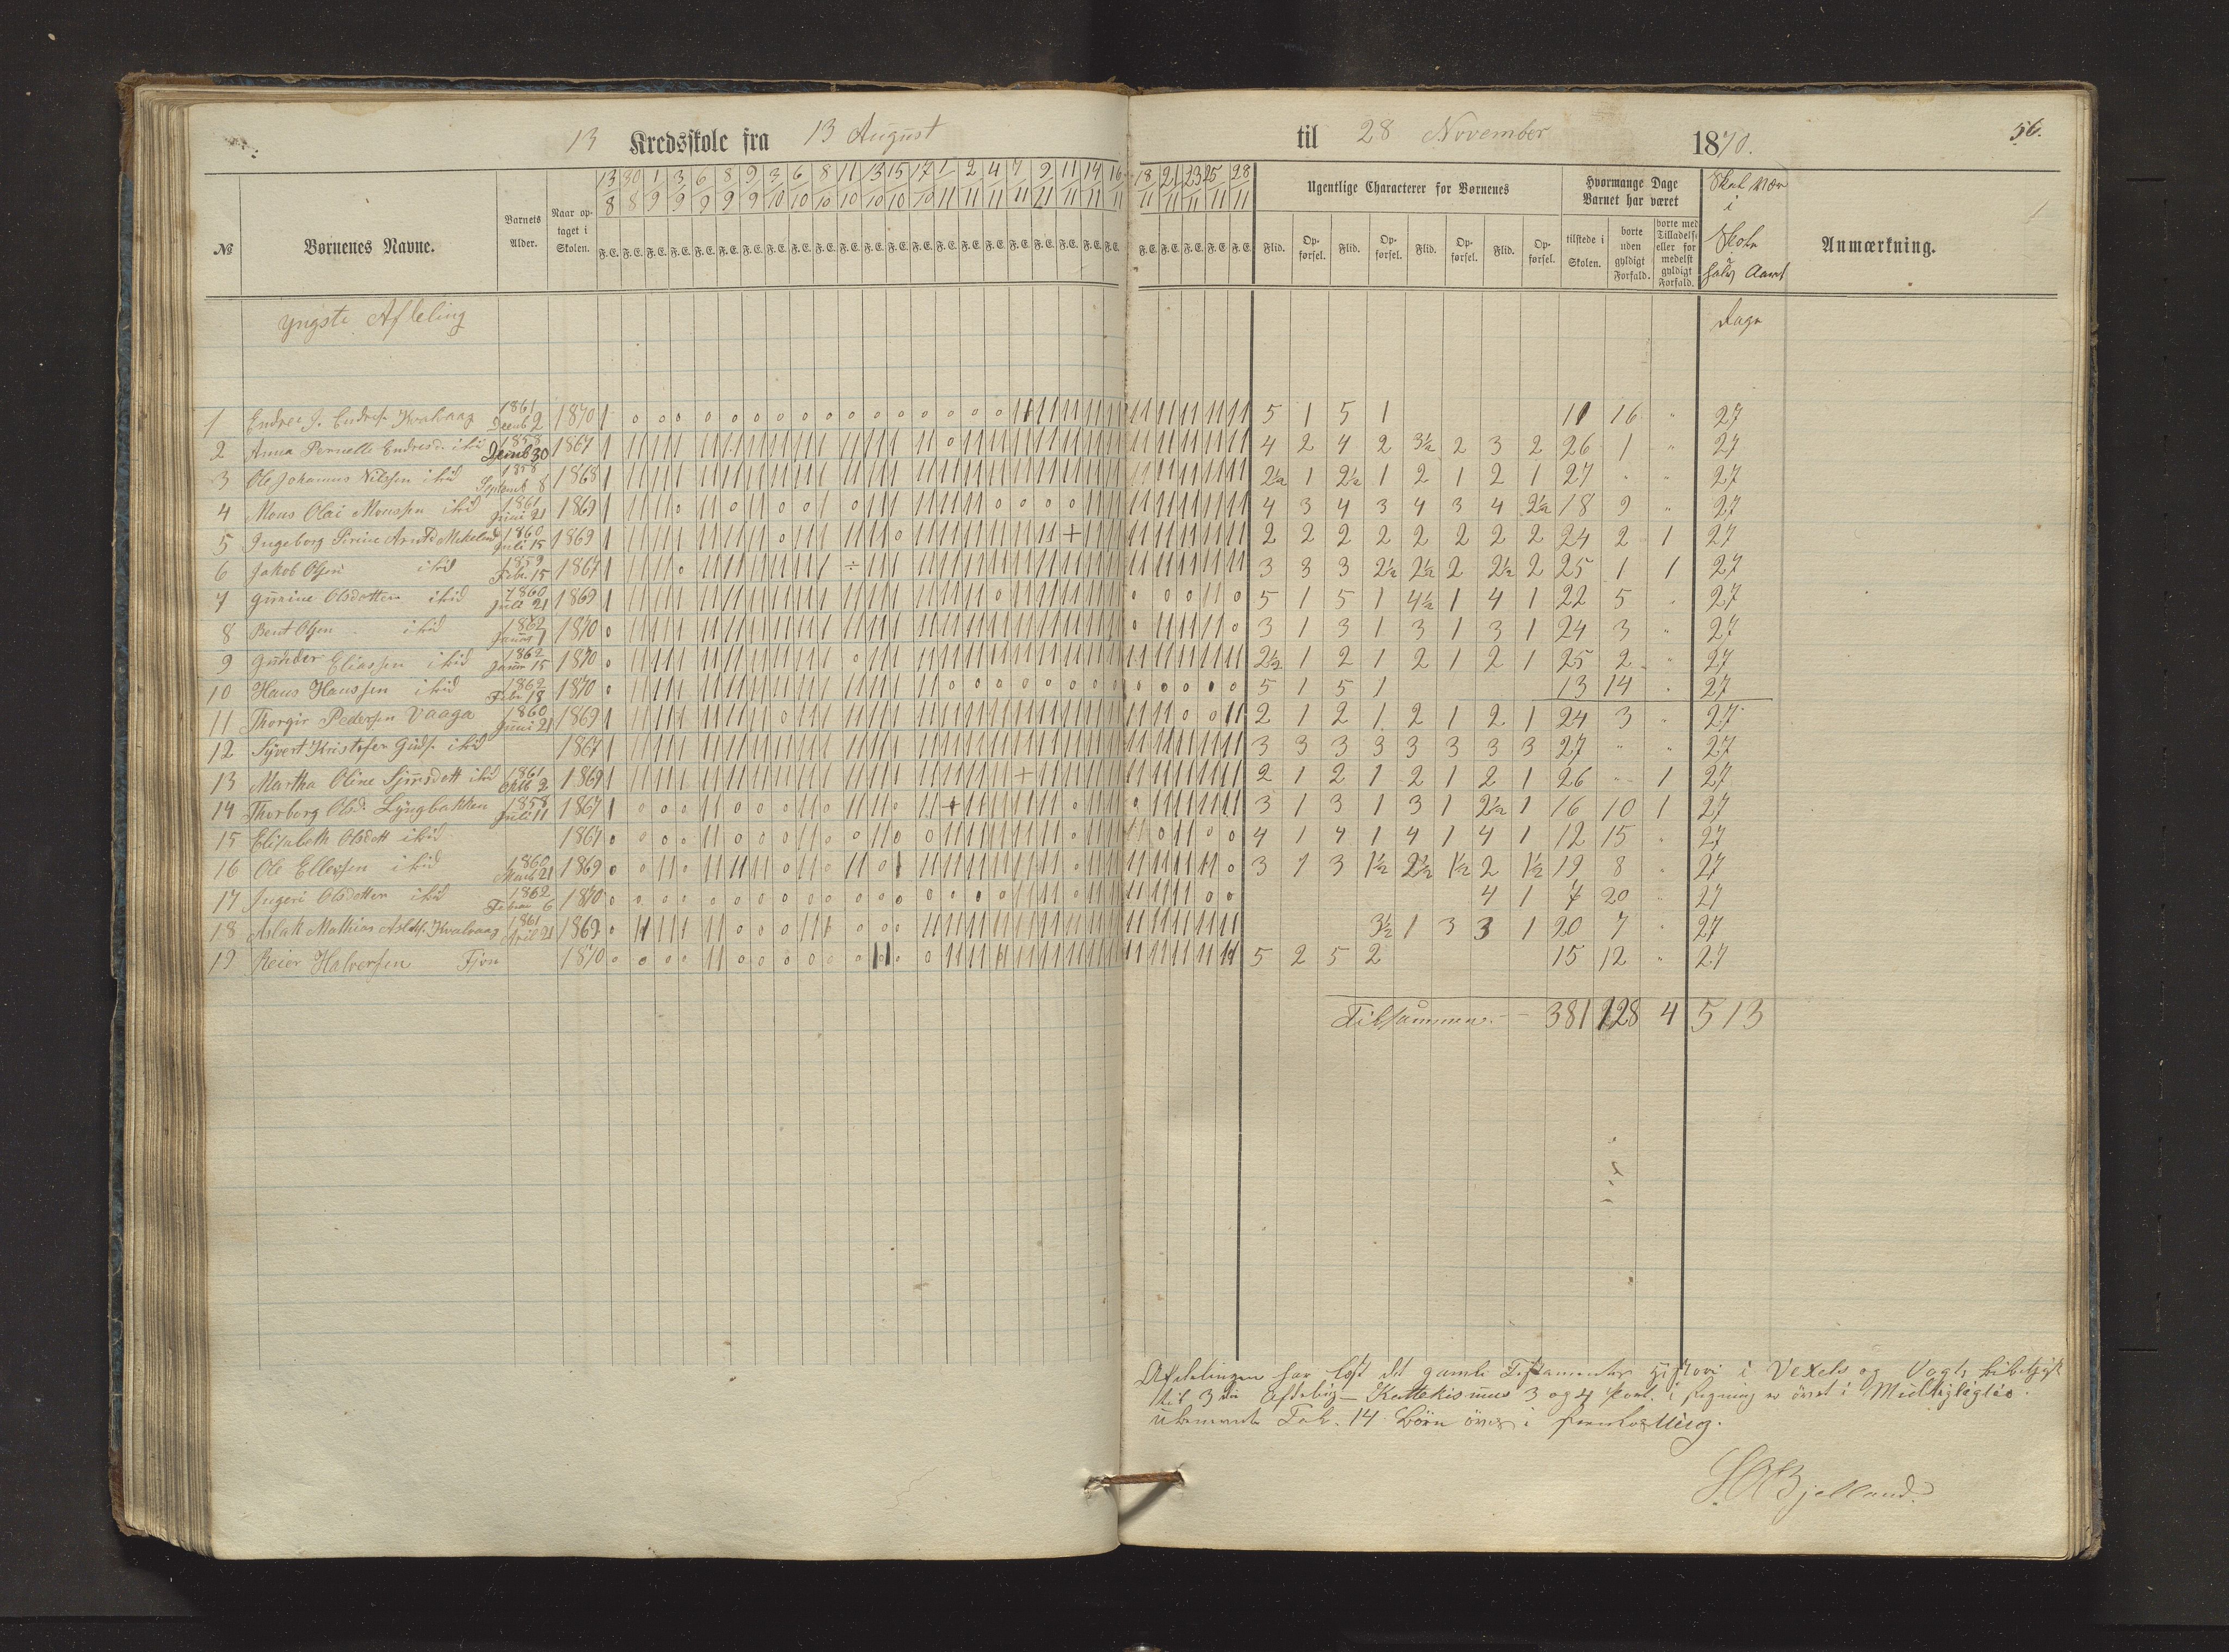 13 Kredsskole fra 13 August til 28 November 1870. 56.
№ Børnenes Navne. Barnets Alder. Naar optaget i Skolen. 13/8 30/8 1/9 3/9 6/9 8/9 9/9 3/10 6/10 8/10 11/10 13/10 15/10 17/10 1/11 2/11 4/11 7/11 9/11 11/11 14/11 16/11 18/11 21/11 23/11 25/11 28/11
Ugentlige Characterer for Børnenes Flid. Opførsel. Flid. Opførsel. Flid. Opførsel. Flid. Opførsel.
Hvormange Dage Barnet har været tilstede i Skolen. borte uden gyldigt Forfald. borte med Tilladelse eller formedelst gyldigt Forfald. Anmærkning.
yngste Afdeling Dage
1 Endre J. Endres. Kvalvaag 1861 Decmb 2 1870 5 1 5 1 11 16 " 27
2 Anna Pernelle Endresd. ibid 1858 30 1867 4 2 4 2 3½ 2 3 2 26 1 " 27
3 Ole Johannes Nilssen ibid 1858 Septemb 8 1868 2½ 1 2½ 1 2 1 2 1 27 " " 27
4 Mons Olai Monssen ibid 1861 Juni 21 1869 4 3 4 3 4 3 4 2½ 18 9 " 27
5 Ingeborg Sirine 1860 Juli 15 1869 2 2 2 2 2 2 2 2 24 2 1 27
6 Jakob Olsen ibid 1859 Febr. 15 1867 3 3 3 2½ 2½ 2 2½ 2 25 1 1 27
7 Gurine Olsdatter ibid 1860 Juli 21 1869 5 1 5 1 4½ 1 4 1 22 5 " 27
8 Bent Olsen ibid 1862 Januar 1 1870 3 1 3 1 3 1 3 1 24 3 " 27
9 Gunder Eliassen ibid 1862 Januar 15 1870 2½ 1 2 1 2 1 2 1 25 2 " 27
10 Hans Hanssen ibid 1862 Febr 18 1870 5 1 5 1 13 14 " 27
11 Thorgir Pedersen Vaaga 1860 Juni 21 1869 2 1 2 1 2 1 2 1 24 3 " 27
12 Sivert Kristofer ibid 1867 3 3 3 3 3 3 3 3 27 " " 27
13 Martha Oline ibid 1861 Oktb 2 1869 2 1 2 1 2 1 2 1 26 " 1 27
14 Thorborg Olsd. Lyngbakken 1858 Juli 11 1867 3 1 3 1 3 1 2½ 1 16 10 1 27
15 Elisabeth Olsdatt ibid 1867 4 1 4 1 4 1 4 1 12 15 " 27
16 Ole Ellefsen ibid 1860 21 1869 3 1 3 1½ 2½ 1½ 2 1½ 19 8 " 27
17 Ingeri Olsdatter ibid 1862 Februar 6 1870 4 1 7 20 " 27
18 Aslak Mathias Kvalvaag 1861 April 21 1869 3½ 1 3 3 1 20 7 " 27
19 Reier Halversen Fjon 1870 5 2 5 2 15 12 " 27
Tilsammen. 381 128 4 513
Afdelingen har læst det gamle Testamentes Historie i Vexels og Vogts
til 3die Kattekismus 3 og 4 Part. i Regning er øvet i
ubenævnte Tal. 14 Børn øves i